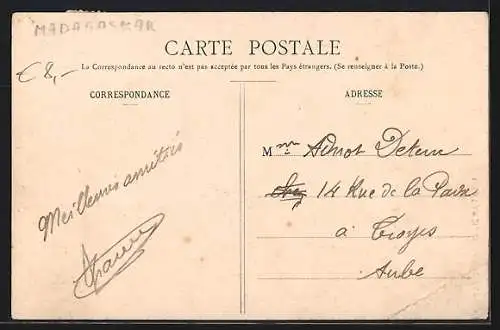 MADAGASCAR
CARTE POSTALE
€ 8,-
La Correspondance au recto n'est pas acceptée par tous les Pays étrangers. (Se renseigner à la Poste.)
CORRESPONDANCE
Meilleures amitiés
ADRESSE
Mme Adnot
14 Rue de la Paix
à Troyes
Aube